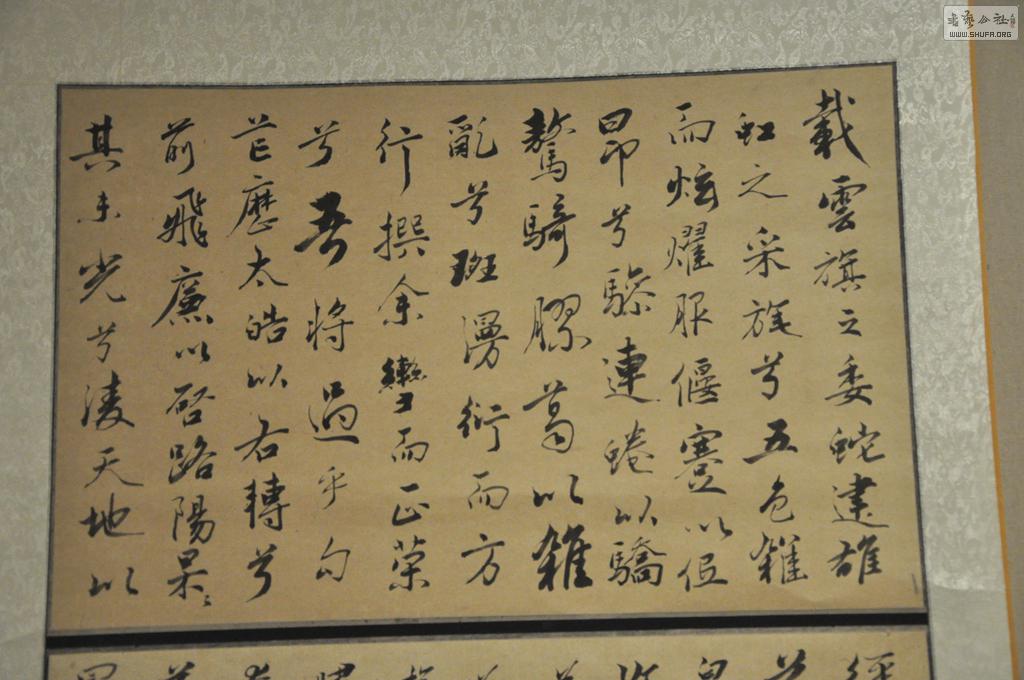 載雲旗之委蛇建雄
虹之采旄兮五色雜
而炫燿服偃蹇以低
昂兮驂連蜷以驕
驁騎膠葛以雜
亂兮斑漫衍而方
行撰余轡而正策
兮吾將過乎勾
芒歷太皓以右轉兮
前飛廉以啓路陽杲〻
其未光兮凌天地以
書藝公社
WWW.SHUFA.ORG